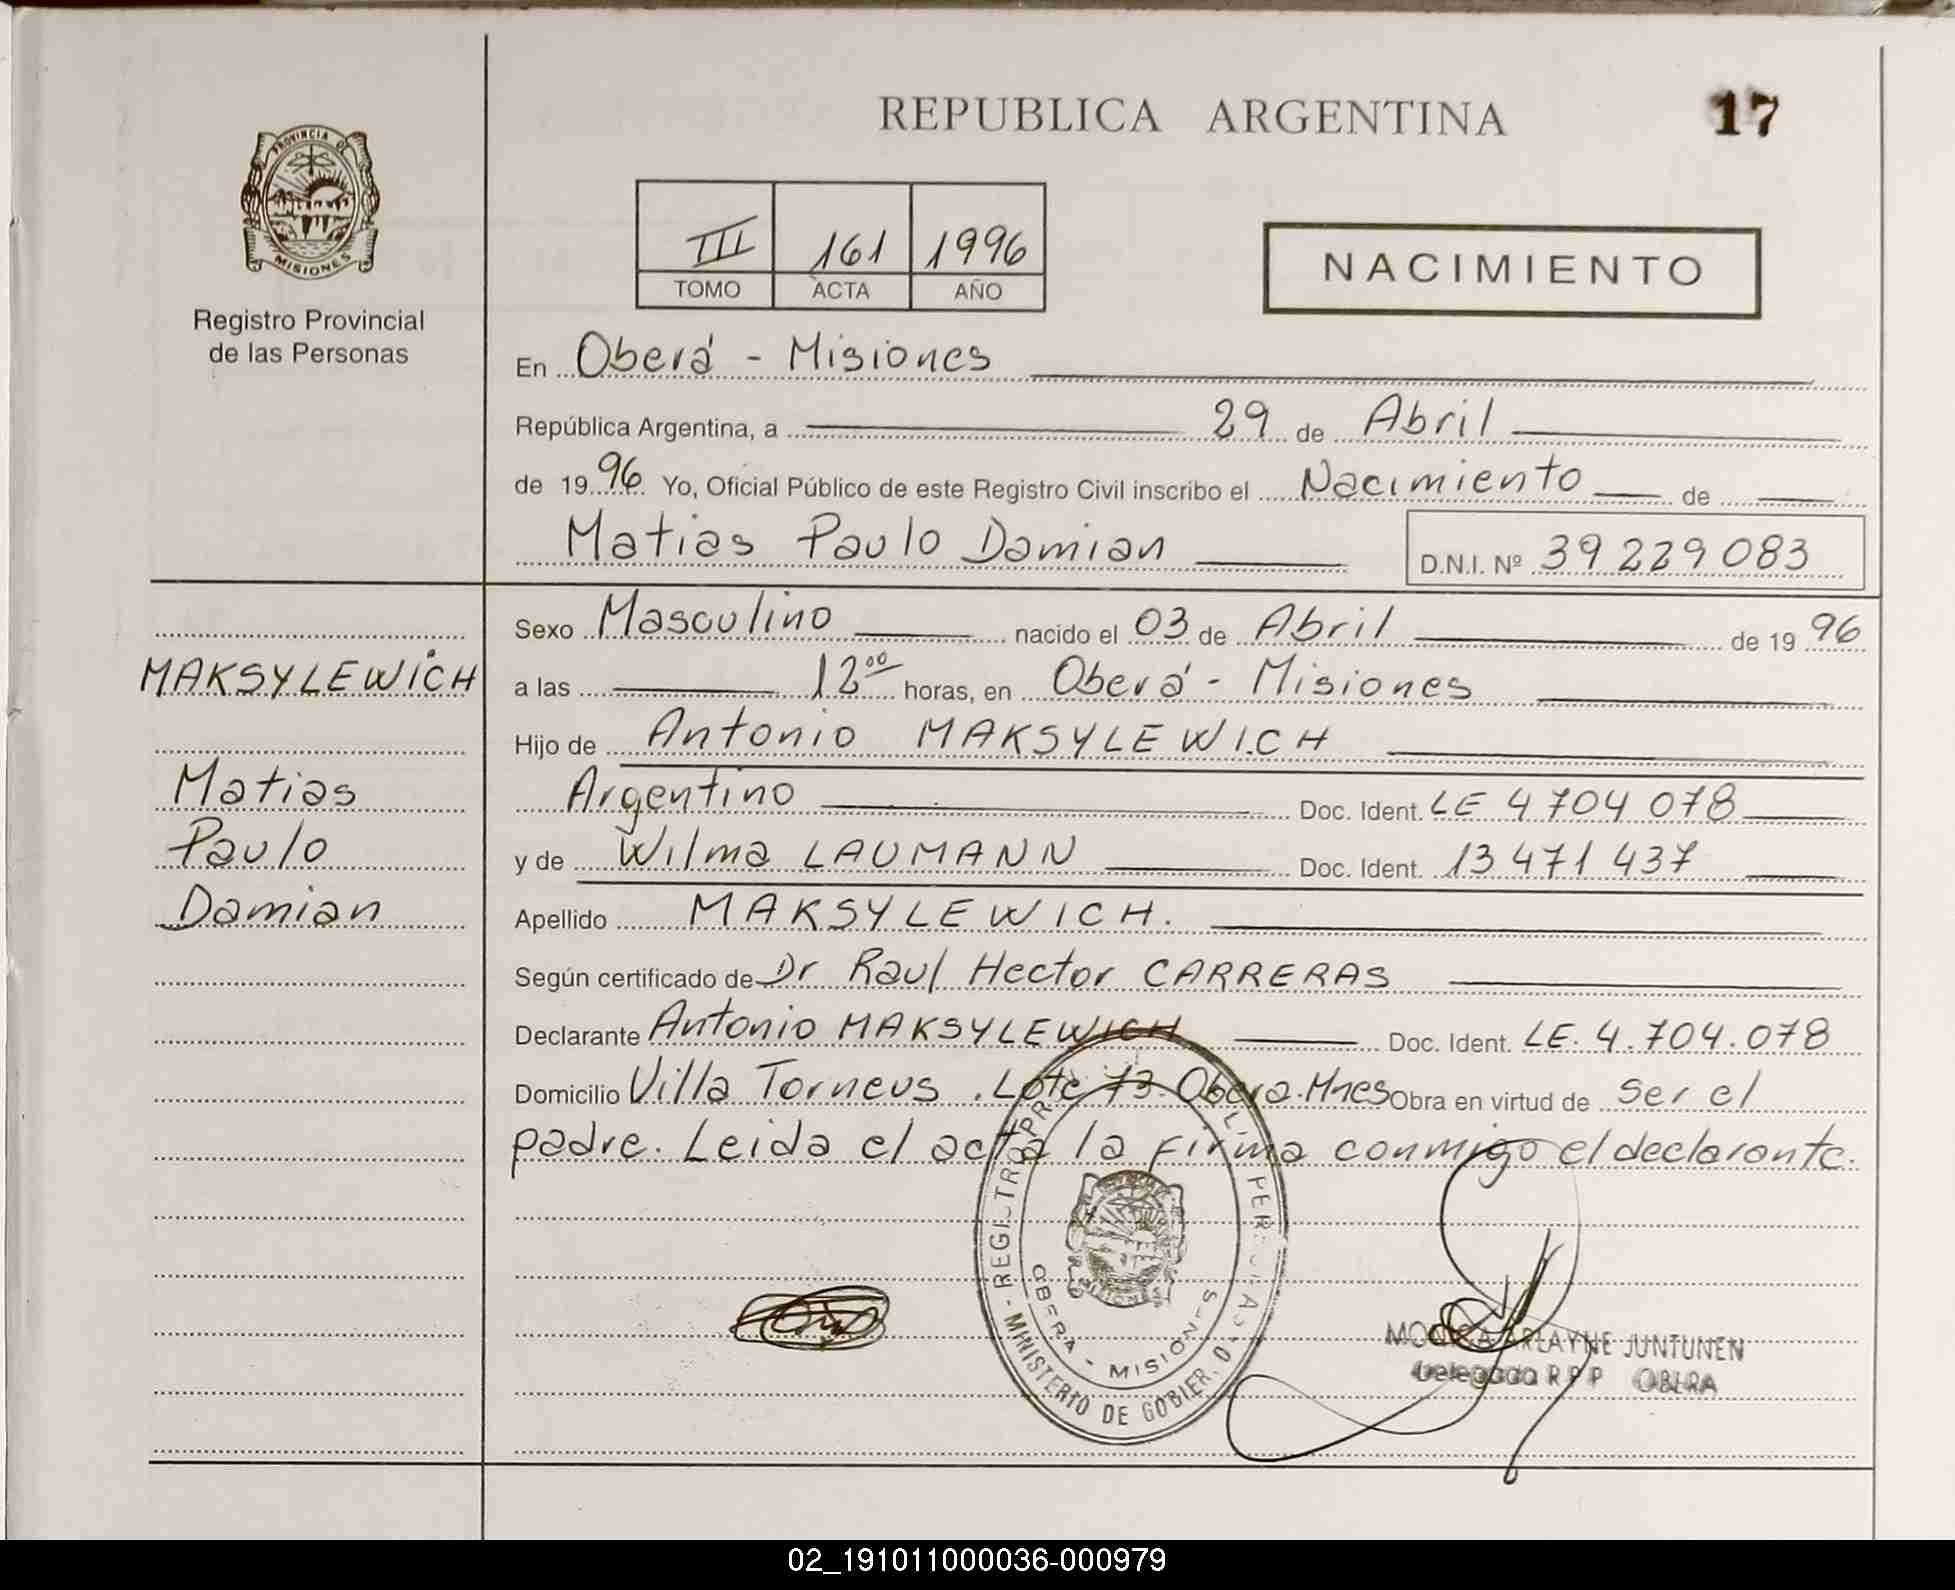 REPUBLICA ARGENTINA
17
PROVINCIA DE
MISIONES
Registro Provincial
de las Personas
III 161 1996
TOMO ACTA AÑO
NACIMIENTO
En Oberá - Misiones
República Argentina, a 29 de Abril
de 1996 Yo, Oficial Público de este Registro Civil inscribo el Nacimiento de
Matias Paulo Damian D.N.I. Nº 39 229 083
Sexo Masculino nacido el 03 de Abril de 19 96
MAKSYLEWICH
a las 12 00 horas, en Oberá - Misiones
Hijo de Antonio MAKSYLEWICH
Matias
Argentino Doc. Ident. LE 4 704 078
Paulo
y de Wilma LAUMANN Doc. Ident. 13 471 437
Damian
Apellido MAKSYLEWICH.
Según certificado de Dr Raul Hector CARRERAS
Declarante Antonio MAKSYLEWICH Doc. Ident. LE. 4.704.078
Domicilio Villa Torneus . Lote 73. Obera. Mnes Obra en virtud de ser el
padre. Leida el acta la firma conmigo el declarante.
OBERA - MISIONES
MINISTERIO DE
MONICA ARLAYNE JUNTUNEN
Delegada R P P OBERA
02_191011000036-000979